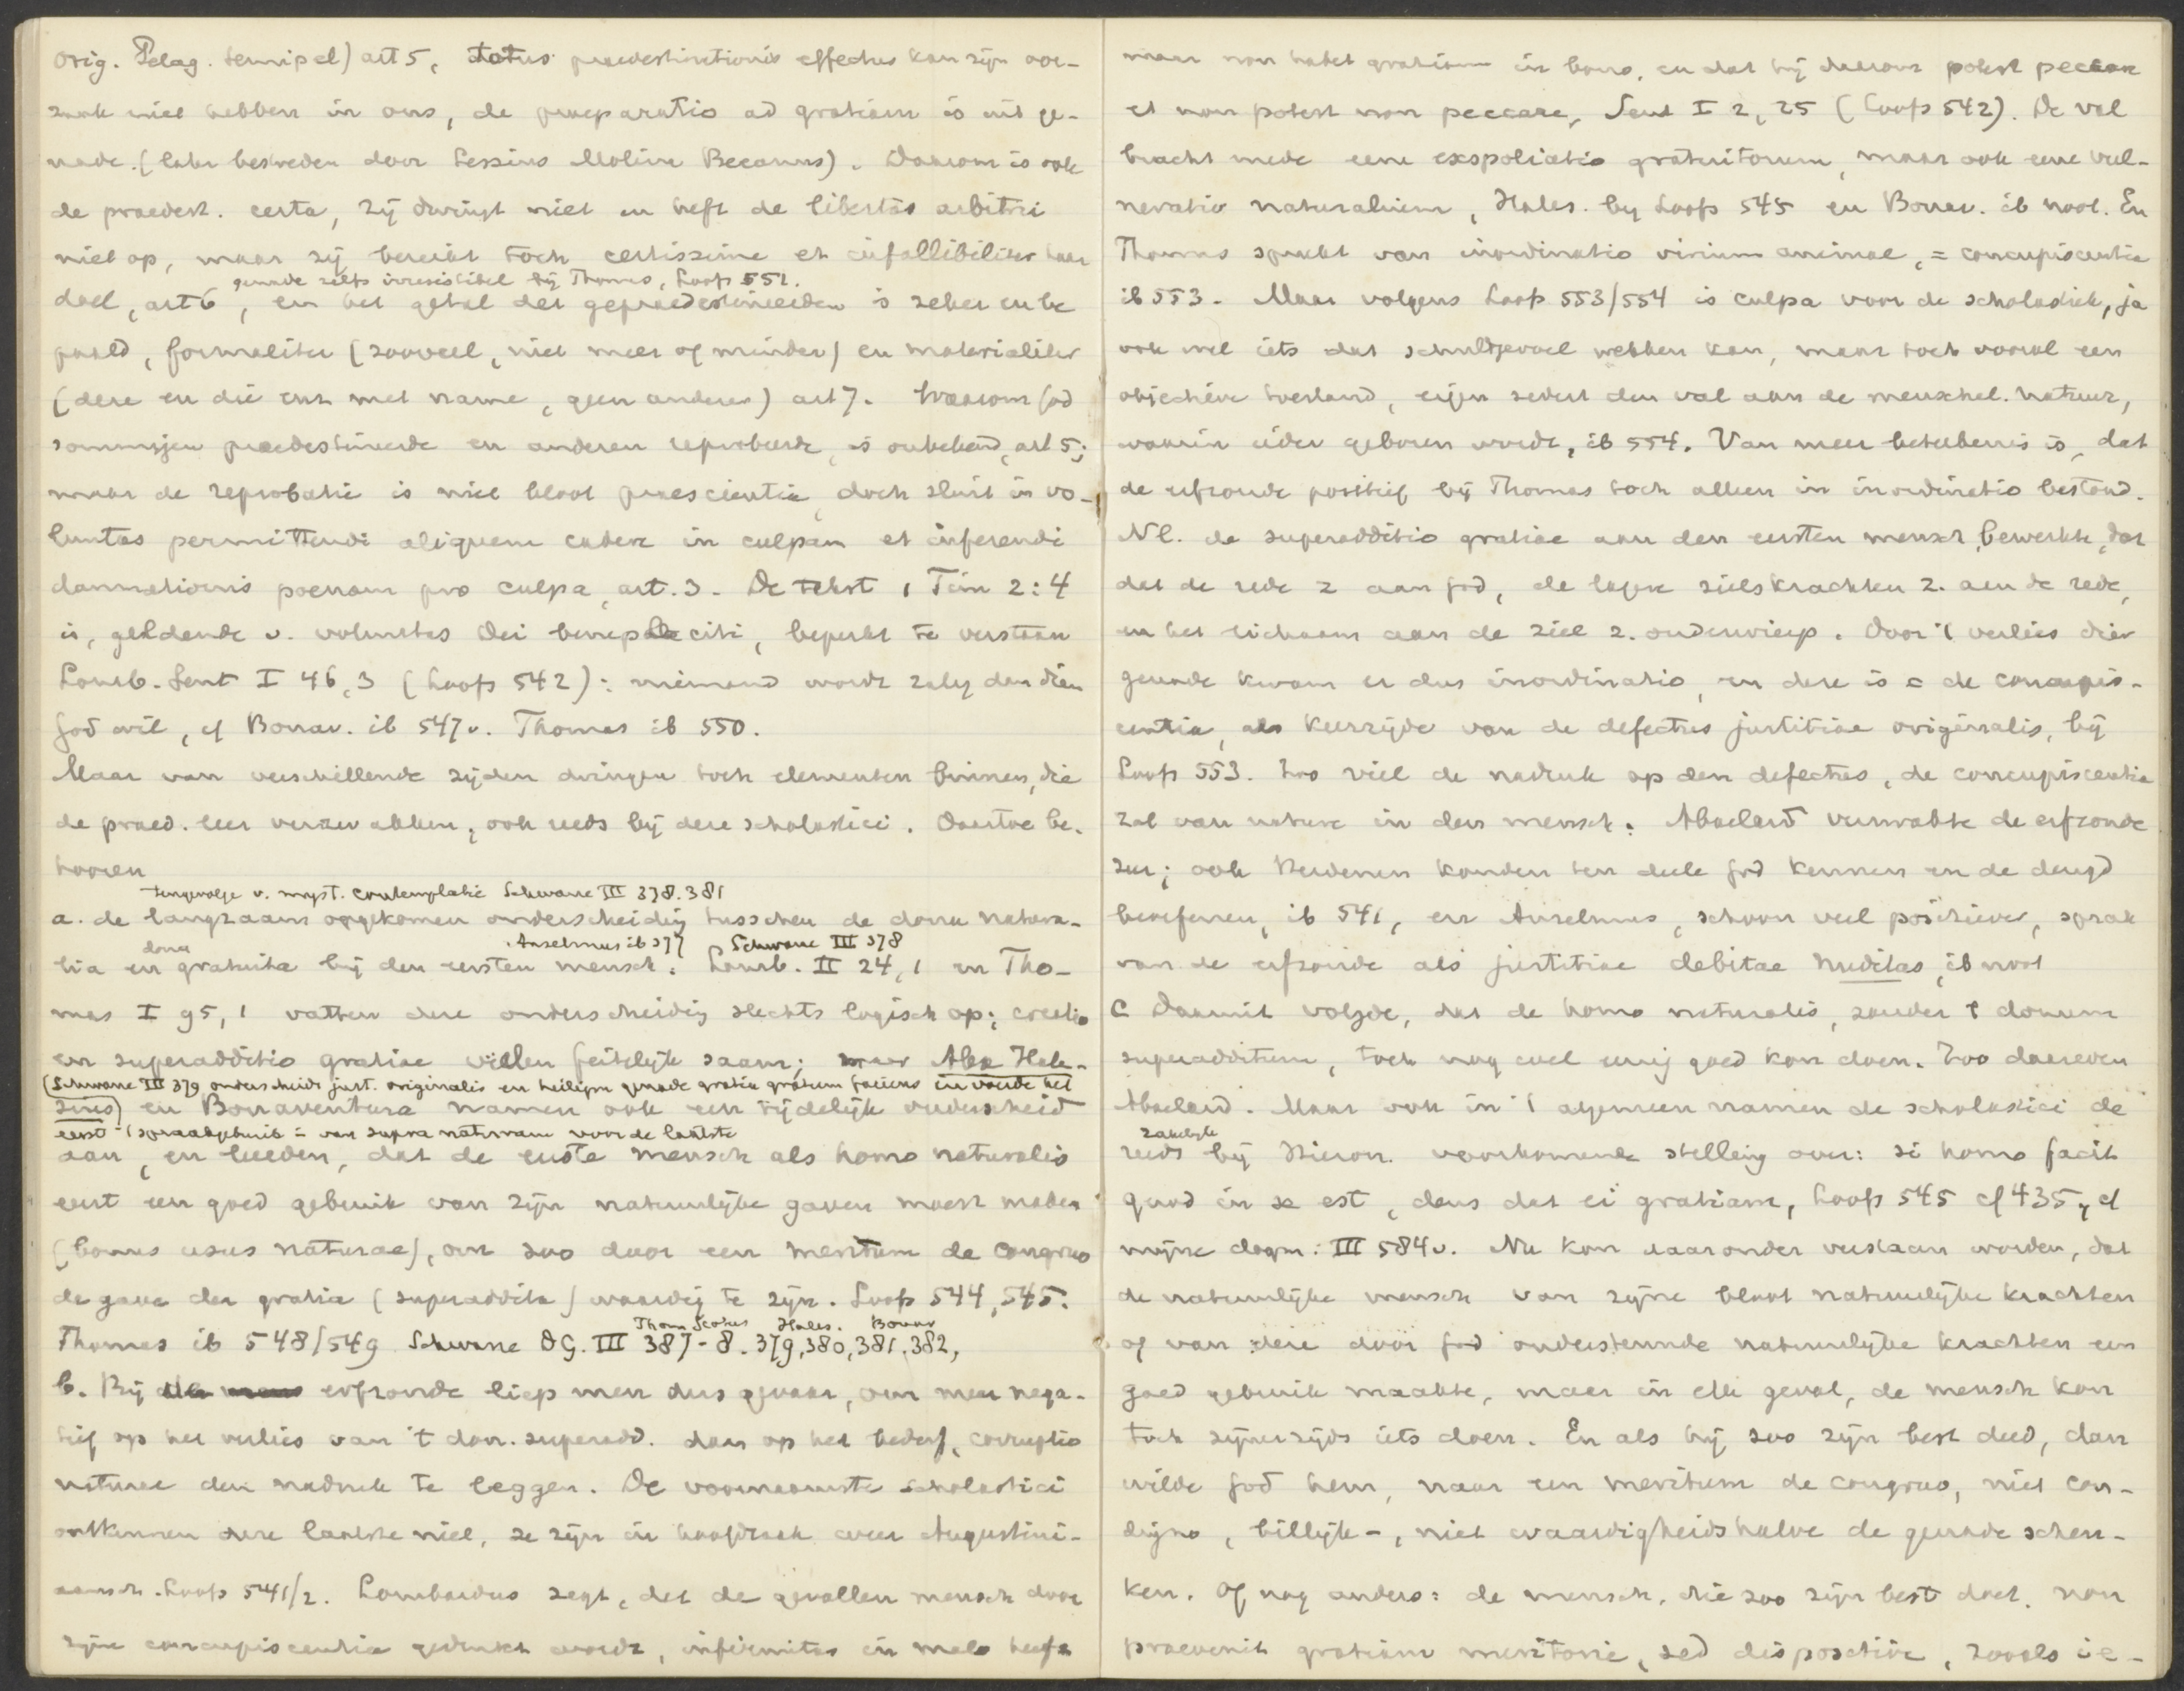 orig. Pelag. semipel) art 5, totus praedestinationis effectus kan zijn oor-
zaak niet hebben in ons, de praeparatio ad gratiam is uit ge-
nade. (later bestreden door Lessius Molina Becanus). Daarom is ook
de praedest. certa, zij dwingt niet en heft de libertas arbitri
niet op, maar zij bereikt toch certissime et infallibiliter haar
genade zelfs irresistibel bij Thomas, Loofs 551.
doel, art 6, en het getal der gepraedestineerden is zeker en be
paald, formaliter (zooveel, niet meer of minder) en materialiter
(deze en die enz met name, geen anderen) art 7. Waarom God
sommigen praedestineerde en anderen reprobeerde, is onbekend, art 5;
maar de reprobatie is niet bloot praescientia, doch sluit in vo-
luntas permittendi aliquem cadere in culpam et inferendi
damnationis poenam pro culpa, art. 3. De tekst 1 Tim 2:4
is, geldende v. voluntas Dei beneplaciti, beperkt te verstaan
Lomb. Sent I 46,3 (Loofs 542): niemand wordt zalig dan dien
God wil, cf Bonav. ib 547v. Thomas ib 550.
Maar van verschillende zijden dringen toch elementen binnen, die
de praed. leer verzwakken, ook reeds bij deze scholastici. Daartoe be-
hooren
tengevolge v. myst. contemplatie Schwane III 378.381
a. de langzaam opgekomen onderscheiding tusschen de dona natura-
dona Anselmus ib 377 Schwane III 378
lia en gratuita bij den eersten mensch. Lomb. II 24,1 en Tho-
mas I 95,1 vatten deze onderscheiding slechts logisch op; creatio
en superadditio gratiae vielen feitelijk saam; maar Alex Hale-
(Schwane III 379 onderscheidt just. originalis en heiligm. genade gratia gratum faciens en voerde het
sius) en Bonaventura namen ook een tijdelijk onderscheid
eerst 't spraakgebruik = van supra naturam voor de laatste
aan, en leerden, dat de eerste mensch als homo naturalis
eerst een goed gebruik van zijn natuurlijke gaven moest maken
(bonus usus naturae), om zoo door een meritum de congruo
de gave der gratia (superaddita) waardig te zijn. Loofs 544, 545.
Thom Scotus Hales. Bonav
Thomas ib 548/549 Schwane DG. III 387-8. 379, 380, 381. 382,
b. Bij erfzonde liep men dus gevaar, om meer nega-
tief op het verlies van 't don. superadd. dan op het bederf, corruptio
naturae den nadruk te leggen. De voornaamste scholastici
ontkennen deze laatste niet, ze zijn in hoofdzaak weer Augustini-
aansch. Loofs 541/2. Lombardus zegt, dat de gevallen mensch door
zijne concupiscentia gedrukt wordt, infirmitas in malo heeft
maar non habet gratiam in bono, en dat hij daarom potest peccare
et non potest non peccare, Sent I 2, 25 (Loofs 542). De val
bracht mede eene exspoliatio gratuitorum, maar ook eene vul-
neratio naturalium, Hales. bij Loofs 545 en Bonav. ib noot. En
Thomas spreekt van inordinatio virium animae, = concupiscentia
ib 553. Maar volgens Loofs 553/554 is culpa voor de scholastiek, ja
ook wel iets dat schuldgevoel wekken kan, maar toch vooral een
objectieve toestand, eigen sedert den val aan de menschel. natuur,
waarin ieder geboren wordt, ib 554. Van meer beteekenis is, dat
de erfzonde positief bij Thomas toch alleen in inordinatio bestond.
Nl. de superadditio gratiae aan den eersten mensch, bewerkte, dat
dat de rede z aan God, de lagere zielskrachten z. aan de rede,
en het lichaam aan de ziel z. onderwierp. Door 't verlies dier
genade kwam er dus inordinatio, en deze is = de concupis-
centia, als keerzijde van de defectus justitiae originalis, bij
Loofs 553. Zoo viel de nadruk op den defectus, de concupiscentia
zat van nature in den mensch. Abaelard verzwakte de erfzonde
zeer; ook Heidenen konden ten deele God kennen en de deugd
beoefenen, ib 541, en Anselmus, schoon veel positiever, sprak
van de erfzonde als justitiae debitae nuditas, ib noot
C Daaruit volgde, dat de homo naturalis, zonder 't donum
superadditum, toch nog wel eenig goed kon doen. Zoo
Abaelard. Maar ook in 't algemeen namen de scholastici de
zakelijk
reeds bij Hieron. voorkomende stelling over: si homo facit
quod in se est, deus dat ei gratiam, Loofs 545 cf 435, cf
mijne dogm: III 584v. Nu kon daaronder verstaan worden, dat
de natuurlijke mensch van zijne bloot natuurlijke krachten
of van deze door God ondersteunde natuurlijke krachten een
goed gebruik maakte, maar in elk geval, de mensch kon
toch zijnerzijds iets doen. En als hij zoo zijn best deed, dan
wilde God hem, naar een meritum de congruo, niet con-
digno, billijk-, niet waardigheidshalve de genade schen-
ken. Of nog anders: de mensch, die zoo zijn best doet, non
praevenit gratiam meritorie, sed dispositive, zooals ie-